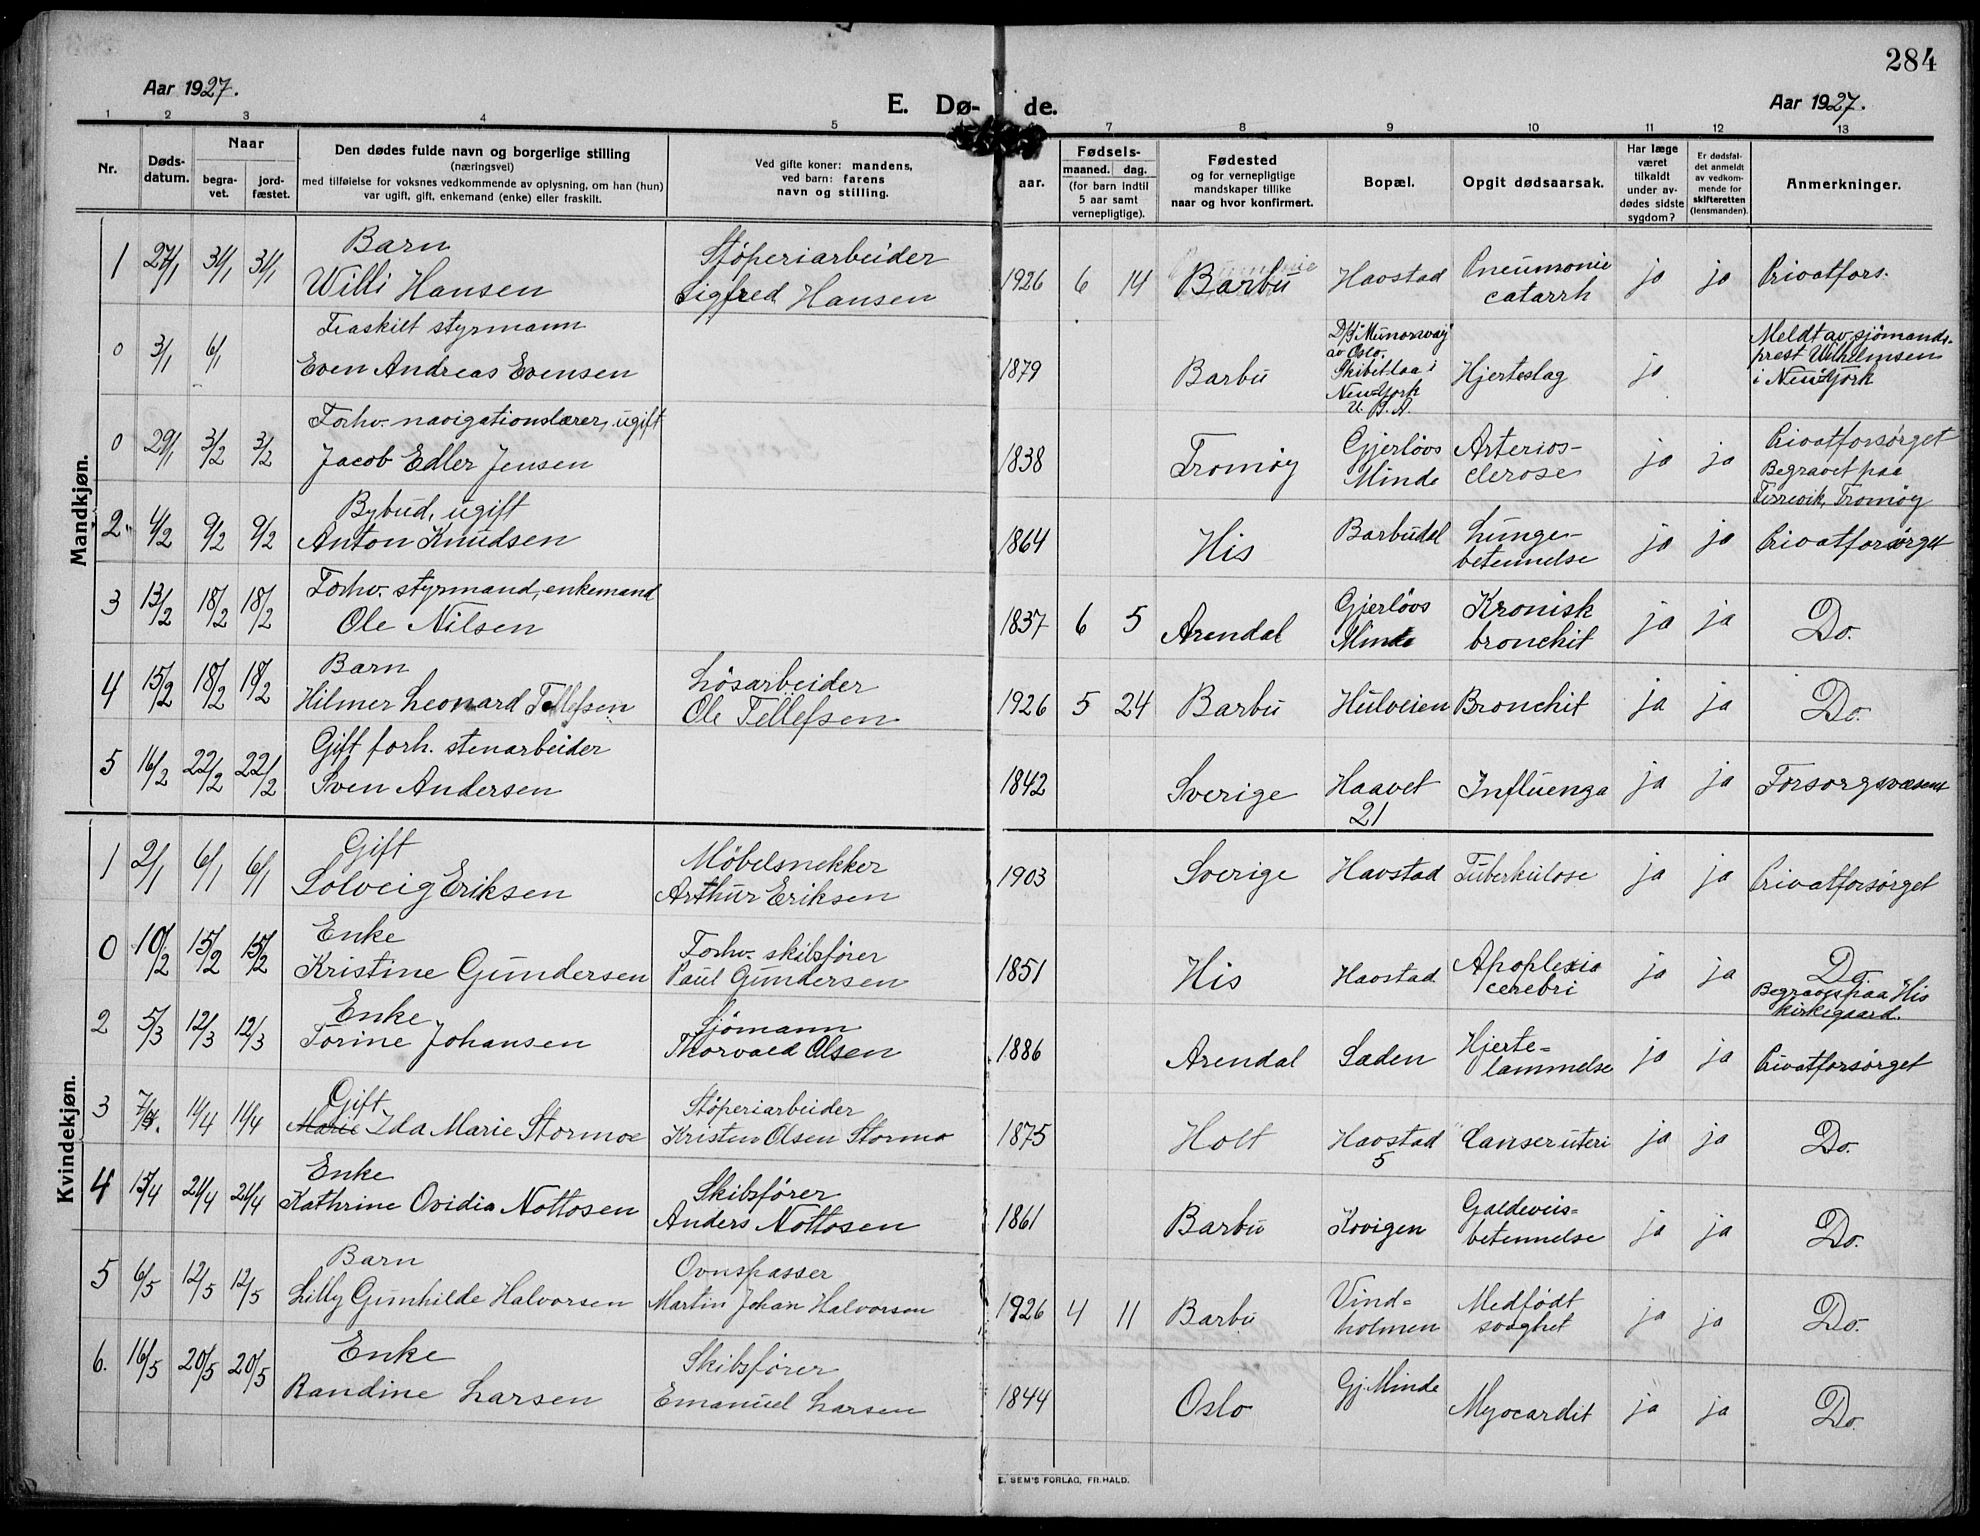 284
Aar 1927.
E. Dø- de.
Aar 1927.
1 2 3 4 5 7 8 9 10 11 12 13
Nr.
Døds-datum.
Naar
begra-vet.
jord-fæstet.
Den dødes fulde navn og borgerlige stilling
(næringsvei)
med tilføielse for voksnes vedkommende av oplysning, om han (hun)
var ugift, gift, enkemand (enke) eller fraskilt.
Ved gifte koner: mandens,
ved barn: farens
navn og stilling.
aar.
Fødsels-
maaned. dag.
(for barn indtil
5 aar samt
vernepligtige).
Fødested
og for vernepligtige
mandskaper tillike
naar og hvor konfirmert.
Bopæl.
Opgit dødsaarsak.
Har læge
været
tilkaldt
under av-
dødes sidste
sygdom?
Er dødsfal-
det anmeldt
av vedkom-
mende for
skifteretten
(lensmanden).
Anmerkninger.
Mandkjøn.
1 27/1 31/1 31/1 Barn
Willi Hansen
Støperiarbeider
Sigfred Hansen
1926 6 14 Barbu Havstad Pneumonie
catarrh
ja ja Privatfors.
0 3/1 6/1 Fraskilt styrmann
Even Andreas Evensen
1879 Barbu
D/S "Munorway"
av Oslo.
Skibet laa i
New-York
U. S. A.
Hjerteslag ja
Meldt av sjömands-
prest Wilhelmsen
i New York
0 29/1 3/2 3/2 Forhv. navigationslærer, ugift
Jacob Edler Jensen
1838 Tromøy Gjerløvs
Minde
Arterios-
clerose
ja ja Privatforsørget
Begravet paa
Færevik, Tromøy
2 4/2 9/2 9/2 Bybud, ugift
Anton Knudsen
1864 His Barbudal Lunge-
betennelse
ja ja Privatforsørget
3 13/2 18/2 18/2 Forhv. styrmand, enkemand
Ole Nilsen
1837 6 5 Arendal Gjerløvs
Minde
Kronisk
bronchit
ja ja Do.
4 15/2 18/2 18/2 Barn
Hilmer Leonard Tellefsen
Løsarbeider
Ole Tellefsen
1926 5 24 Barbu Hulveien Bronchit ja ja Do.
5 16/2 22/2 22/2 Gift forh. stenarbeider
Sven Andersen
1842 Sverige Haavet
21
Influenga ja ja Forsorgsvæsenet
Kvindekjøn.
1 2/1 6/1 6/1 Gift
Solveig Eriksen
Møbelsnekker
Arthur Eriksen
1903 Sverige Havstad Tuberkulose ja ja Privatforsørget
0 10/2 15/2 15/2 Enke
Kristine Gundersen
Forhv. skibsfører
Paul Gundersen
1851 His Havstad Apoplexia
cerebri
ja ja Do.
Begraves paa His
kirkegaard.
2 5/3 12/3 12/3 Enke
Torine Johansen
Sjömann
Thorvald Olsen
1886 Arendal Saden Hjerte-
lammelse
ja ja Privatforsørget
3 7/4. 11/4 11/4 Gift
Marie Ida Marie Stormoe
Støperiarbeider
Kristen Olsen Stormo
1875 Holt Havstad
5
Canser uteri ja ja Do.
4 15/4 21/4 21/4 Enke
Kathrine Ovidia Nottosen
Skibsfører
Anders Nottosen
1861 Barbu Kovigen Galdeveis-
betennelse
ja ja Do.
5 6/5 12/5 12/5 Barn
Lilly Gunhilde Halvorsen
Ovnspasser
Martin Johan Halvorsen
1926 4 11 Barbu Vind-
holmen
Medfødt
svaghet
ja ja Do.
6. 16/5 20/5 20/5 Enke
Randine Larsen
Skibsfører
Emanuel Larsen
1844 Oslo Gj. Minde Myocardit ja ja Do.
E. SEM'S FORLAG, FR.HALD.